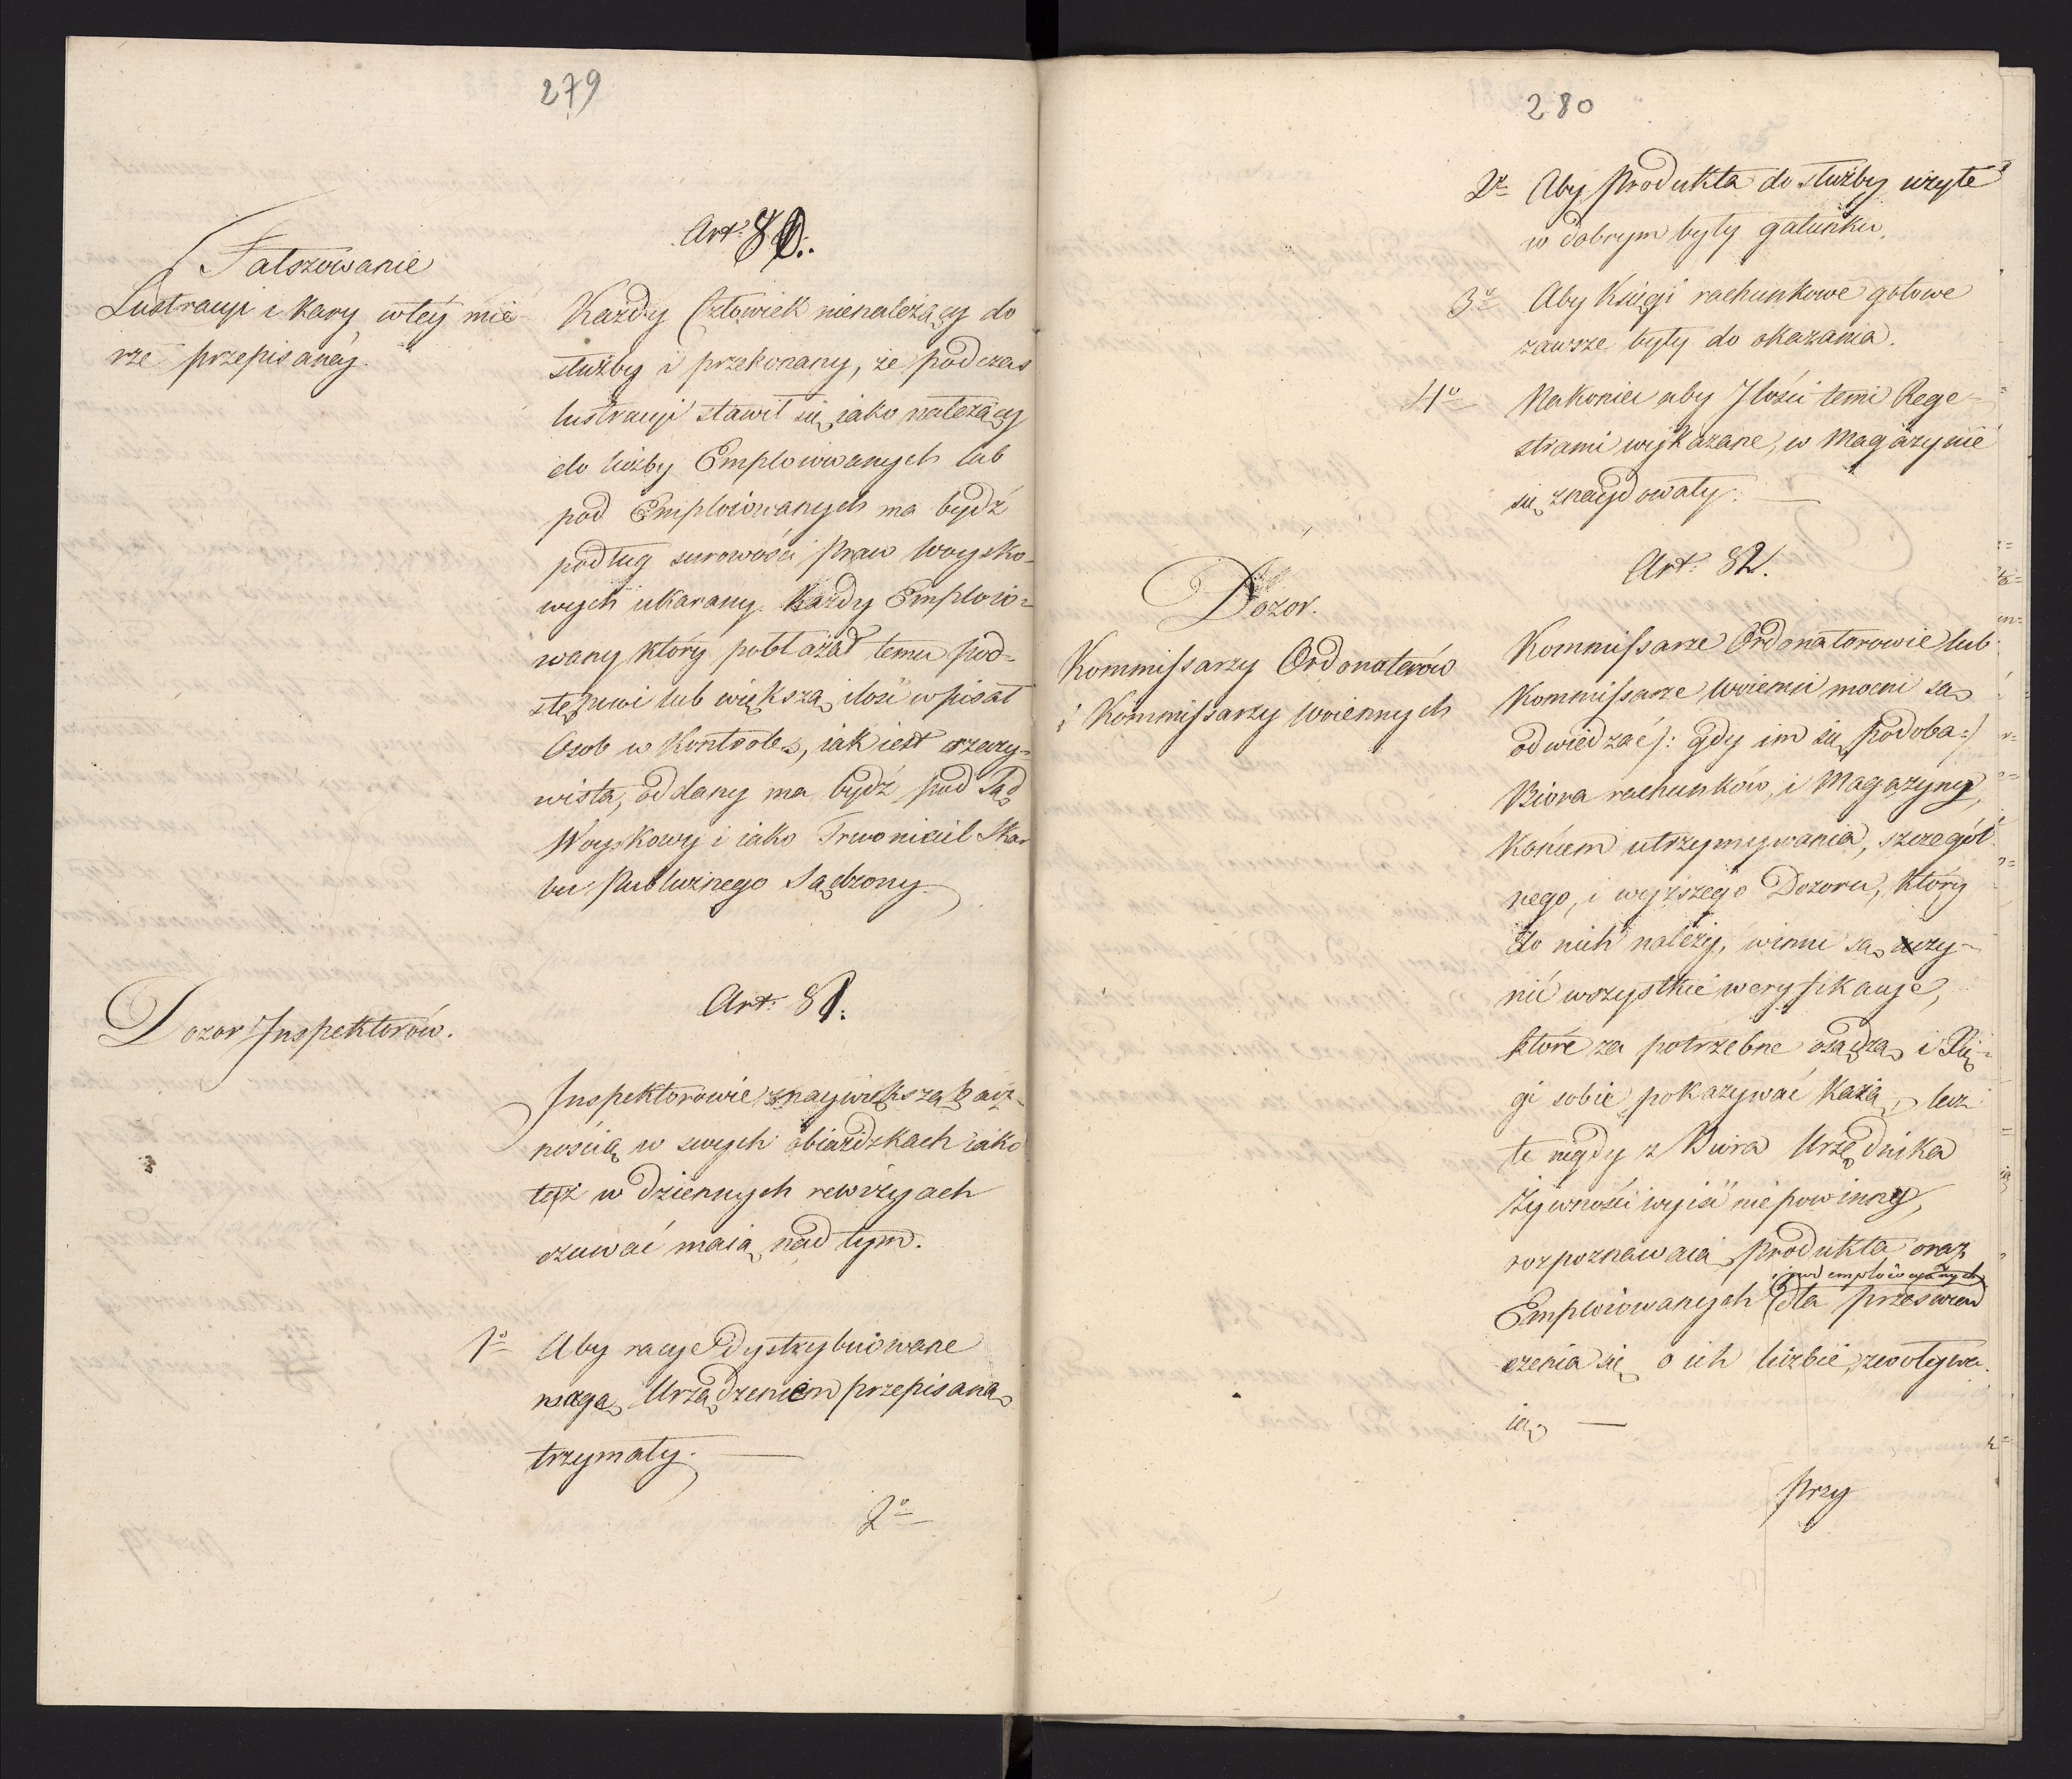 279
Art. 80.
Fałszowanie
Lustracyi i kary wtéy mie-
rze przepisanéy.
Każdy Człowiek nienależący do
służby i przekonany, że podczas
lustracyi stawił się iako należący
do liczby Emploiowanych lub
pod Emploiowanych ma bydź
podług surowości Praw Woysko-
wych ukarany. Każdy Emploio-
wany który pobłażał temu pod-
stępowi lub większą ilość wpisał
Osob w Kontrolę, iak iest oczewy-
wista, oddany ma bydź pod Sąd
Woyskowy i iako Trwoniciel Skar
bu Publicznego Sądzony
Art. 81.
Dozor Inspektorów.
Inspektorowie z naywiększą bacz-
nością w swych obiazdzkach iako
téż w dziennych rewizyach
czuwać maią nad tym.
1o Aby racye dystrybuiowane
wagę Urządzeniem przepisaną
trzymały.
2o
280
2o Aby Produkta do służby użyte
w dobrym były gatunku.
3o Aby Księgi rachunkowe gotowe
zawsze były do okazania.
4o Nakoniec aby Ilości temi Rege-
strami wykazane, w Magazynie
się znaydowały.
Art. 82.
Dozor.
Kommissarzy Ordonatorów
i Kommissarzy Woiennych
Kommissarze Ordonatorowie lub
Kommissarze Woienni mocni są
odwiedzać /: gdy im się podoba :/
Biora rachunków, i Magazyny,
Końcem utrzymywania, szczegól
nego, i wyższego Dozoru, który
do nich należy, winni są uczy-
nić wszystkie weryfikacye,
które za potrzebne osądzą i Księ-
gi sobie pokazywać każą, lecz
te nigdy z Biora Urzędnika
Żywności wyiść nie powinny,
rozpoznawaią Produkta oraz
i pod emploiowanych
Emploiowanych dla przeswiad
czenia się o ich liczbie, zwoływa
ią
Przy